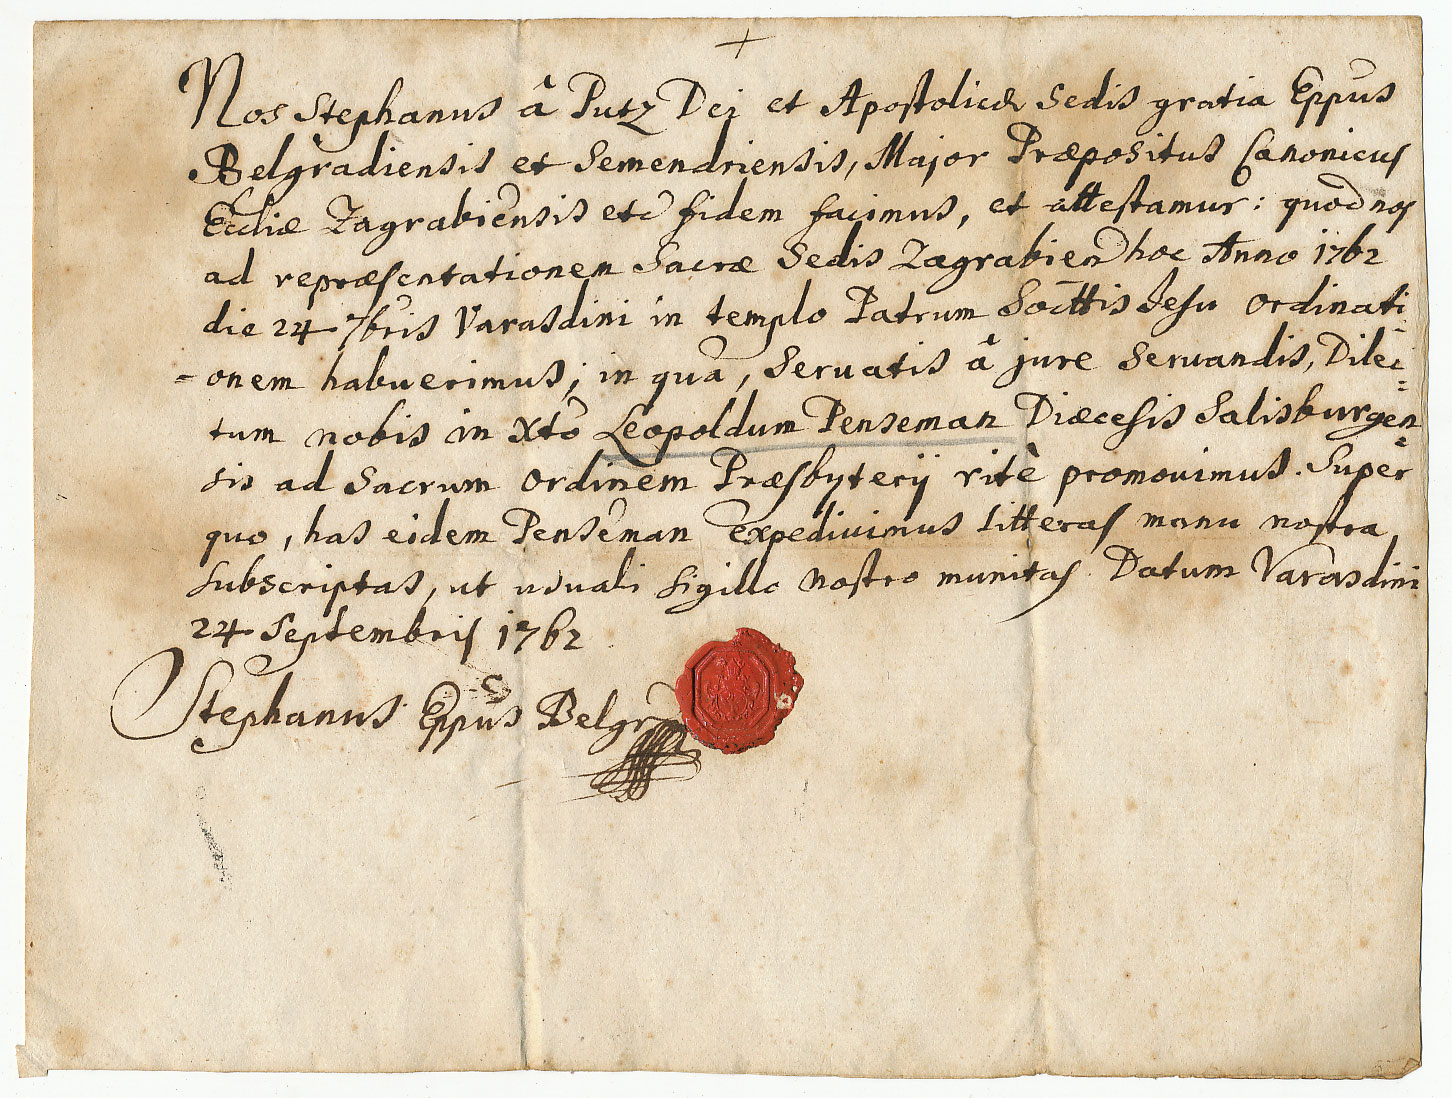 Nos Stephanus â Putz Dei et Apostolicæ Sedis gratia Eppus
Belgradiensis et Semendriensis, Major Præpositus Canonicus
Eccliæ Zagrabiensis etc fidem facimus, et attestamur: quod nos
ad repræsentationem Sacræ Sedis Zagrabien hoc Anno 1762
die 24 7bris Varasdini in templo Patrum Socittis Jesu Ordinati
-onem habuerimus; in qua, Servatis â jure Servandis, Dilec=
tum nobis in Xto Leopoldum Penseman Diæcesis Salisburgen=
sis ad Sacrum Ordinem Præsbyterij ritè promovimus. Super
quo, has eidem Penseman expedivimus litteras manu nostra
subscriptas, ut usuali sigillo nostro munitas. Datum Varasdini
24 Septembris 1762
Stephanus Eppus Belgra